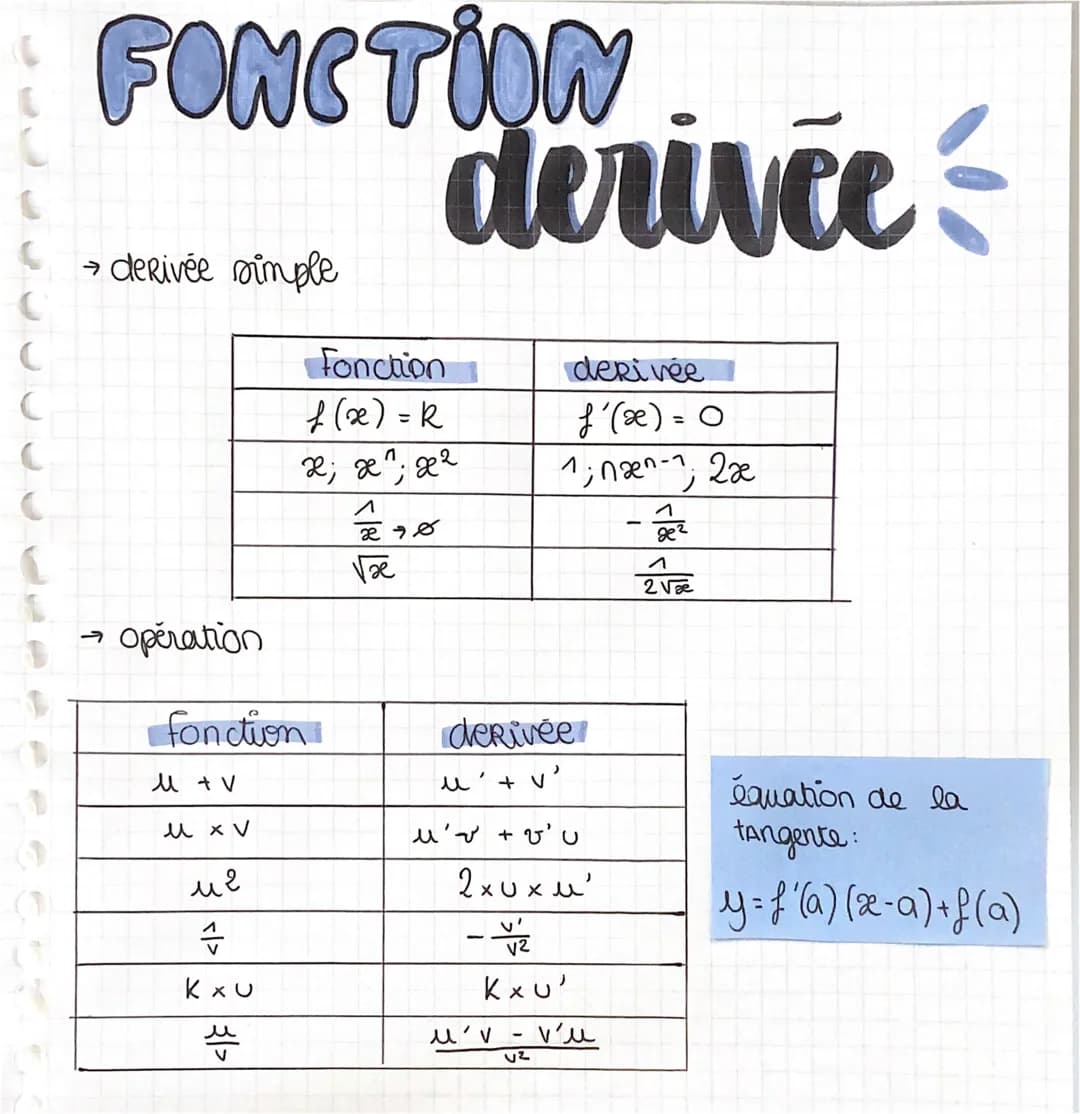 FONCTION
derivēe
→ derivēe simple
Fonction derivēe
f(x) = k f'(x) = 0
x; xⁿ; x² 1; nxⁿ⁻¹; 2x
1/x → ∅ - 1/x²
√x 1/2√x
→ opēration
fonction derivēe
u + v u' + v'
u × v u'v + v'u
u² 2 × u × u'
1/v - v'/v²
K × u K × u'
u/v u'v - v'u/v²
ēquation de la
tangente:
y = f'(a) (x-a) + f(a)